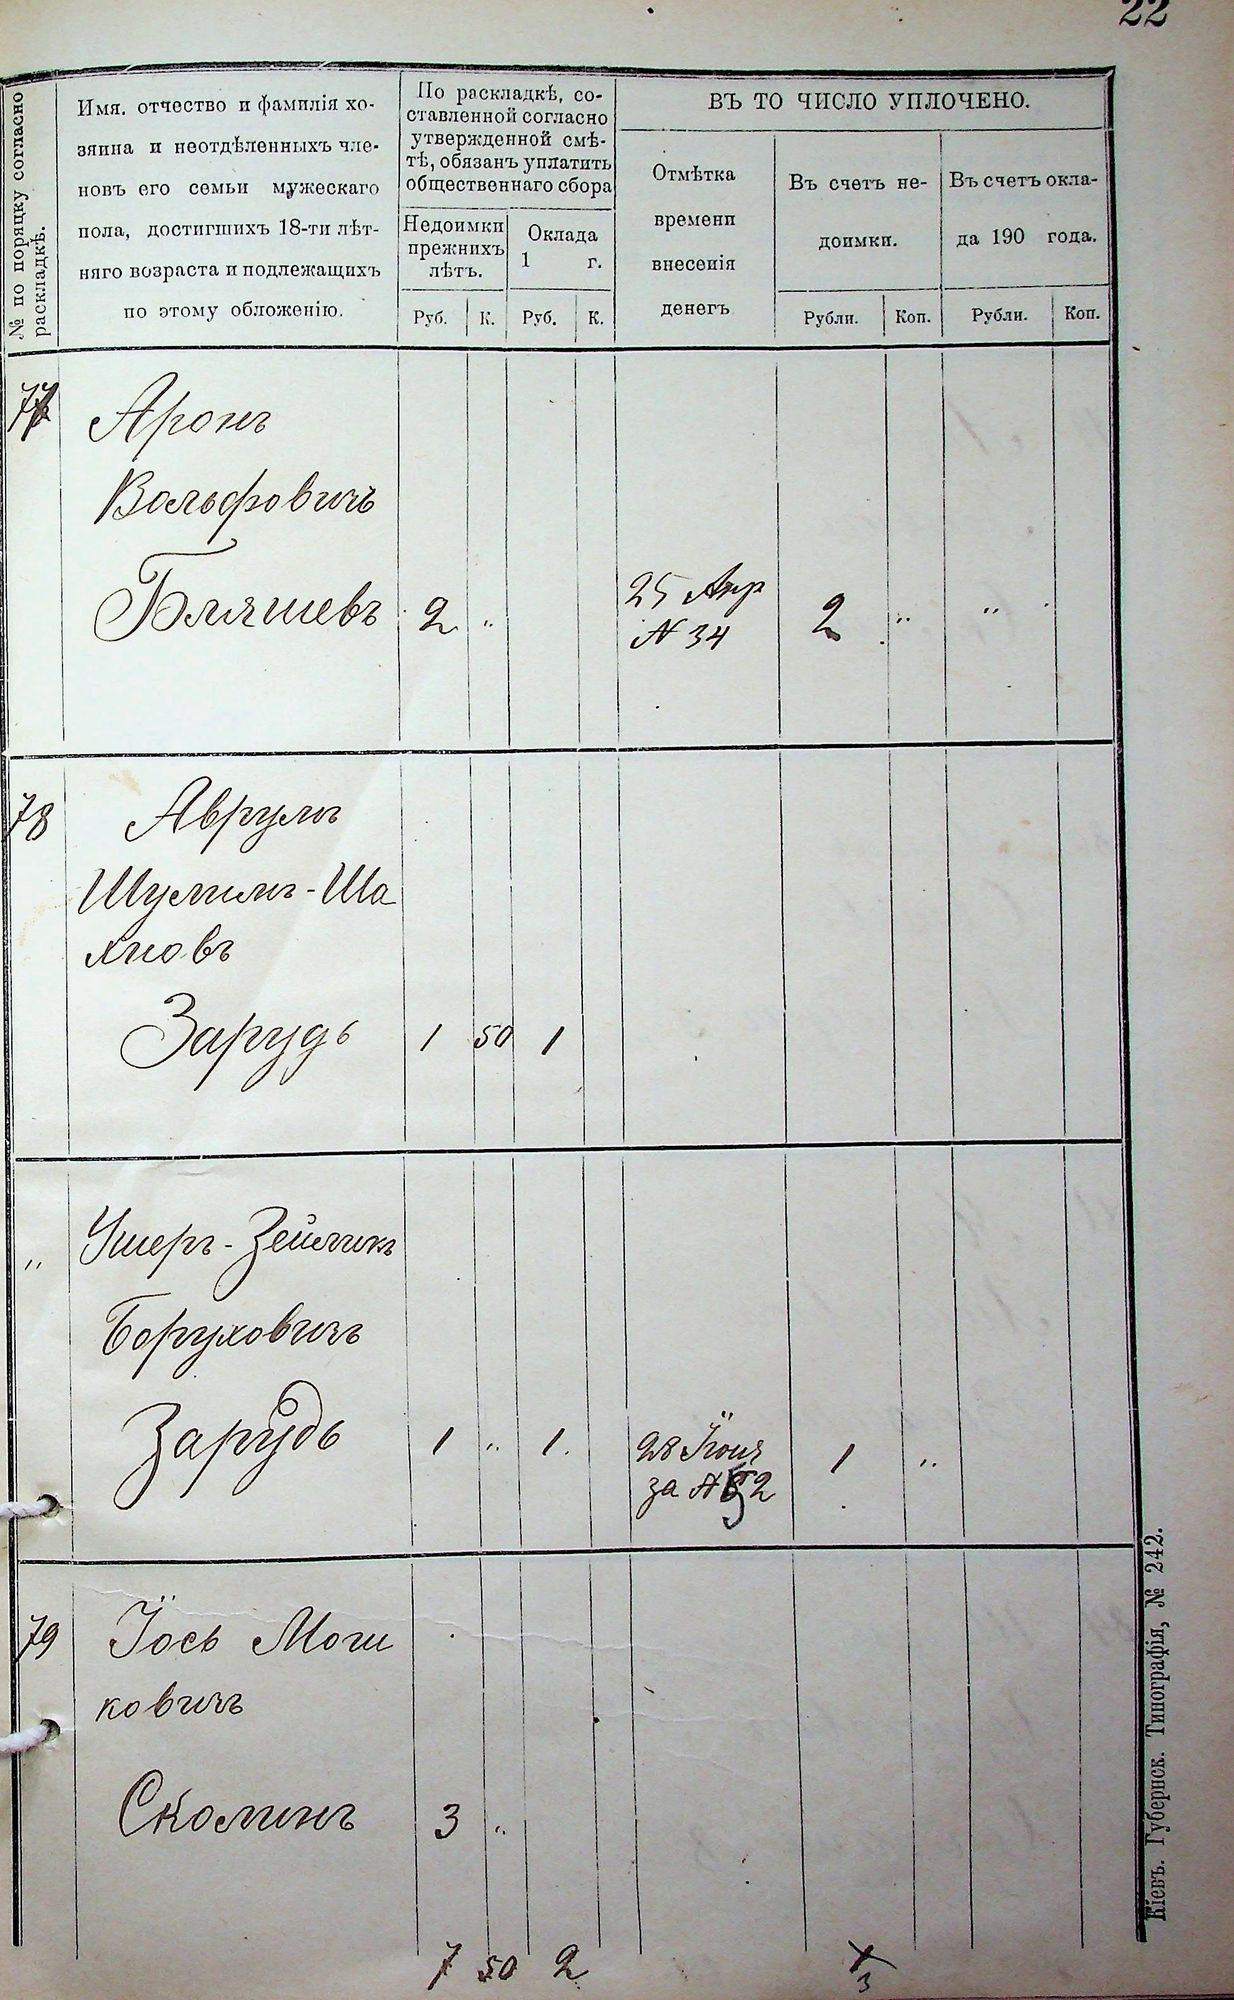 22
№ по порядку согласно
раскладкѣ.
Имя, отчество и фамилія хо-
зяина и неотдѣленныхъ чле-
новъ его семьи мужескаго
пола, достигшихъ 18-ти лѣт-
няго возраста и подлежащихъ
по этому обложенію.
По раскладкѣ, со-
ставленной согласно
утвержденной смѣ-
тѣ, обязанъ уплатить
общественнаго сбора
Недоимки
прежнихъ
лѣтъ.
Оклада
1 г.
Руб. К. Руб. К.
ВЪ ТО ЧИСЛО УПЛОЧЕНО.
Отмѣтка
времени
внесенія
денегъ
Въ счетъ не-
доимки.
Въ счетъ окла-
да 190 года.
Рубли. Коп. Рубли. Коп.
77 Аронъ
Вольфовичъ
Бляшевъ 2 " 25 Апр 2 " "
№ 34
78 Аврумъ
Шулимъ-Ша
хновъ
Зарудь 1 50 1
" Ушеръ-Зейликъ
Боруховичъ
Зарудь 1 " 1. 28 Іюня 1 "
за № 52
79 Іось Мош
ковичъ
Сколинъ 3 "
7 50 2
3
Кіевъ. Губернск. Типографія, № 242.